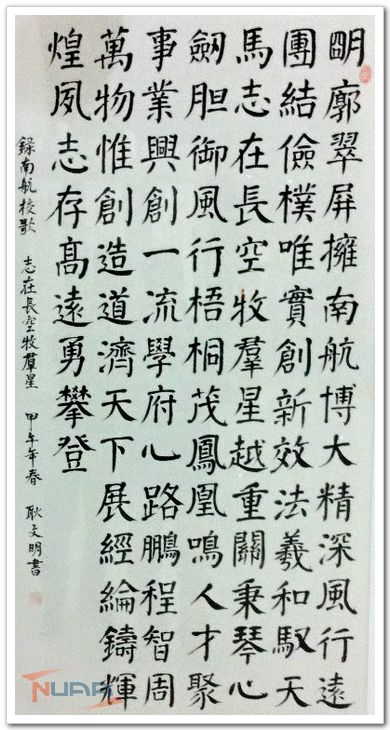 明廓翠屏擁南航博大精深風行遠
團結儉樸唯實創新效法羲和馭天
馬志在長空牧羣星越重關秉琴心
劒胆御風行梧桐茂鳳凰鳴人才聚
事業興創一流學府心路鵬程智周
萬物惟創造道濟天下展經綸鑄輝
煌夙志存髙遠勇攀登
錄南航校歌 志在長空牧羣星 甲午年春 耿文明書
NUAA